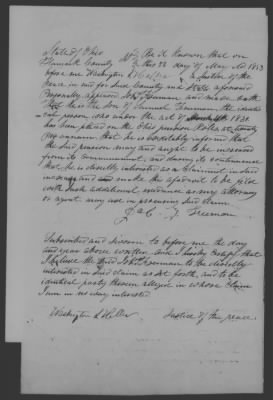 State of Ohio
County Be it known that on
this 22 day of May AD 1853
before me Washington a Justice of the
peace in and for said County and State aforesaid
Personally appeared John Freeman and made oath
that he is the son of Samuel Freeman the
person who was under the act of 1832
has been placed on the Ohio pension Rolls at
per annum that he is credibly informed that
the said pension may and ought to be increased
from its commencement, and during its continuance
that he is directly interested as a claimant in said
increase and make this affidavit to be filed
with such additional evidence as my attorney
or agent may use in procuring said claim
Freeman
Subscribed and sworn to before me the day
and year above written and I hereby certify that
I believe the said John Freeman to be directly
interested in said claim as set forth, and to be
identical party therein alleged in whose claim
I am in no way interested
Washington Justice of the peace